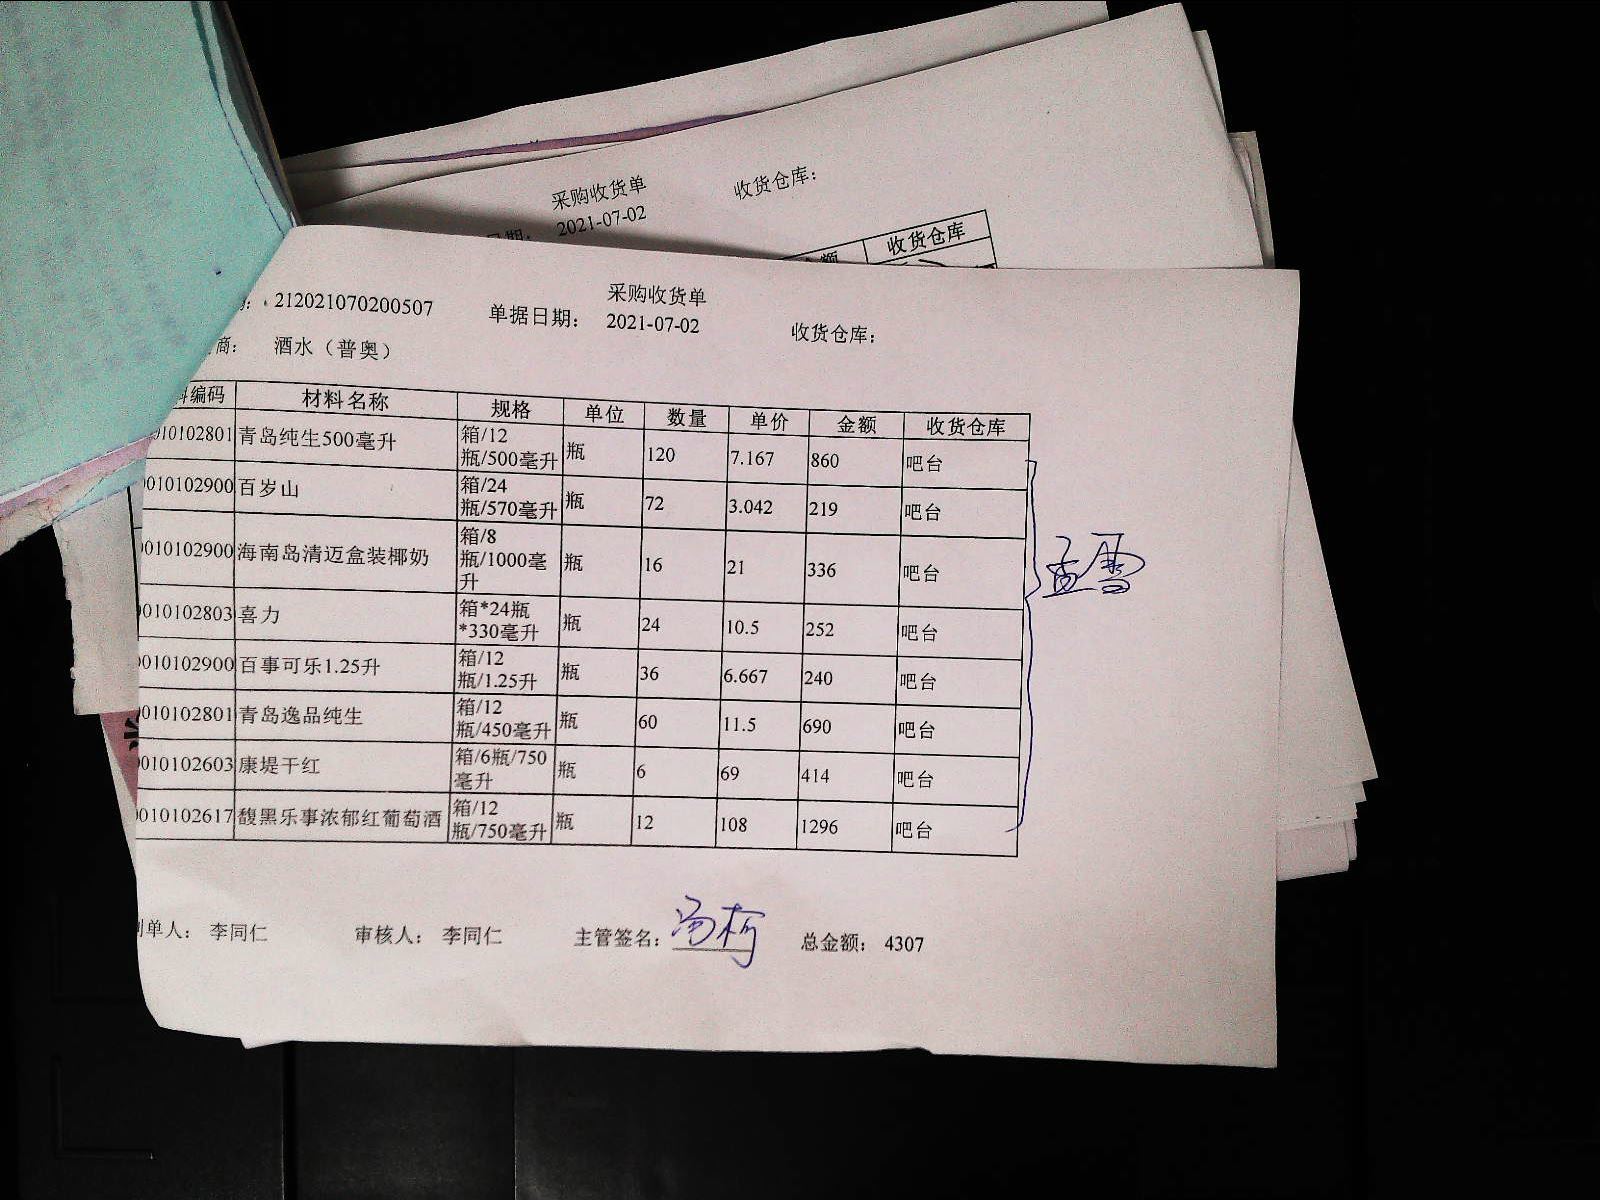 采购收货单
收货仓库：
日期：
2021-07-02
金额
收货仓库
采购收货单
：212021070200507
单据日期：
2021-07-02
收货仓库：
商：
酒水（普奥）
编码 材料名称 规格 单位 数量 单价 金额 收货仓库
010102801 青岛纯生500毫升 箱/12 瓶/500毫升 瓶 120 7.167 860 吧台
0010102900 百岁山 箱/24 瓶/570毫升 瓶 72 3.042 219 吧台
0010102900 海南岛清迈盒装椰奶 箱/8 瓶/1000毫升 瓶 16 21 336 吧台
0010102803 喜力 箱*24瓶 *330毫升 瓶 24 10.5 252 吧台
0010102900 百事可乐1.25升 箱/12 瓶/1.25升 瓶 36 6.667 240 吧台
0010102801 青岛逸品纯生 箱/12 瓶/450毫升 瓶 60 11.5 690 吧台
0010102603 康堤干红 箱/6瓶/750毫升 瓶 6 69 414 吧台
0010102617 馥黑乐事浓郁红葡萄酒 箱/12 瓶/750毫升 瓶 12 108 1296 吧台
孟雪
制单人： 李同仁 审核人： 李同仁 主管签名： 总金额： 4307